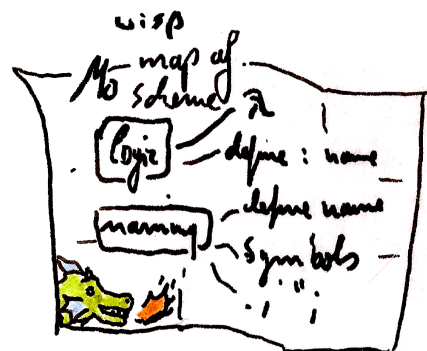 wisp
map of
scheme
λ
logic
define : name
naming
define name
symbols
. i " i